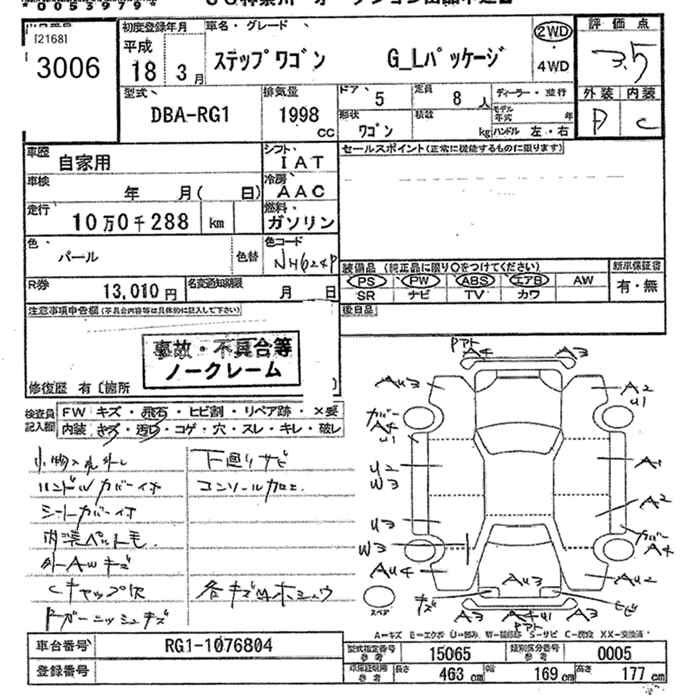 [2168]
3006
初度登録年月
平成
18 3月
車名・グレード
ステップワゴン G_Lパッケージ
2WD
・
4WD
評価点
3.5
外装 内装
D C
型式
DBA-RG1
排気量
1998
cc
ドア 5
定員 8人
形状
ワゴン
積載
kg
ディーラー・並行
モデル年式 年
ハンドル 左・右
車歴
自家用
シフト
IAT
車検
年 月( 日)
冷房
AAC
走行
10万0千288 km
燃料
ガソリン
色
パール
色替
色コード
NH624P
R券
13,010円
名変通知期限
月 日
セールスポイント(正常に機能するものに限ります)
装備品 (純正品に限り○をつけてください)
PS PW ABS エアB AW
SR ナビ TV カワ
新車保証書
有・無
後日品
注意事項申告欄(不具合内容等は具体的に記入して下さい)
事故・不具合等
ノークレーム
修復歴 有〔箇所
検査員
記入欄
FW キズ・飛石・ヒビ割・リペア跡・X要
内装 キズ・汚レ・コゲ・穴・スレ・キレ・破レ
小物入レ外レ
ハンドルカバー付
シートカバー付
内装ペット毛
外AWキズ
Cキャップ欠
Fガーニッシュキズ
下廻リサビ
コンソール加工
各キズ凹ホシュウ
Pアト
A4 A3
AU3
A2
U1
カバー
A4
U1
U2
W3
U3
W3
AU4
A1
A2
カバー
A4
AU3
キズ
A3
A4U1
Pアト
A3
ヒビ
AU3
スペア
A=キズ E=エクボ U=凹み W=補修跡 S=サビ C=腐食 XX=交換済
車台番号 RG1-1076804
登録番号
型式指定番号
参考
15065
類別区分番号
参考
0005
車検証期用
参考
長さ 463 cm 幅 169 cm 高さ 177 cm